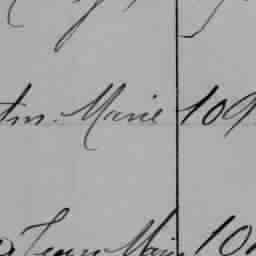 tin Marie 109
Jean Marie 10